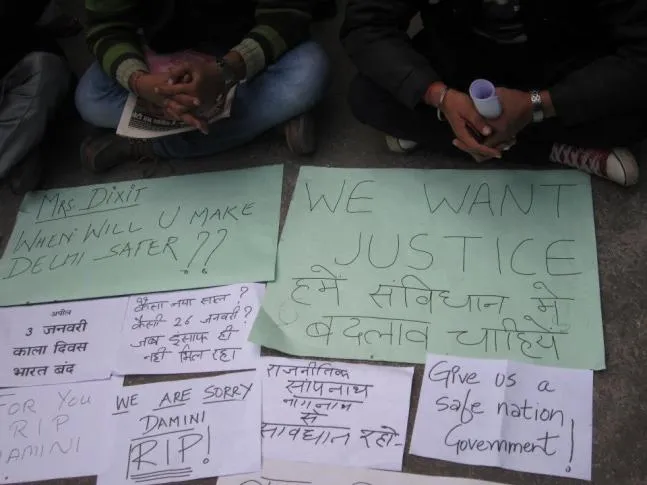 MRS. DIXIT
WHEN WILL U MAKE
DELHI SAFER ??
WE WANT
JUSTICE
हमें संविधान मे
बदलाव चाहिये
अपील
3 जनवरी
काला दिवस
भारत बंद
कैसा नया साल ?
कैसी 26 जनवरी ?
जब इंसाफ ही
नही मिल रहा
FOR YOU
RIP
DAMINI
WE ARE SORRY
DAMINI
RIP!
राजनीतिक
सांपनाथ
नागनाथ
से
सावधान रहो-
Give us a
safe nation,
Government!